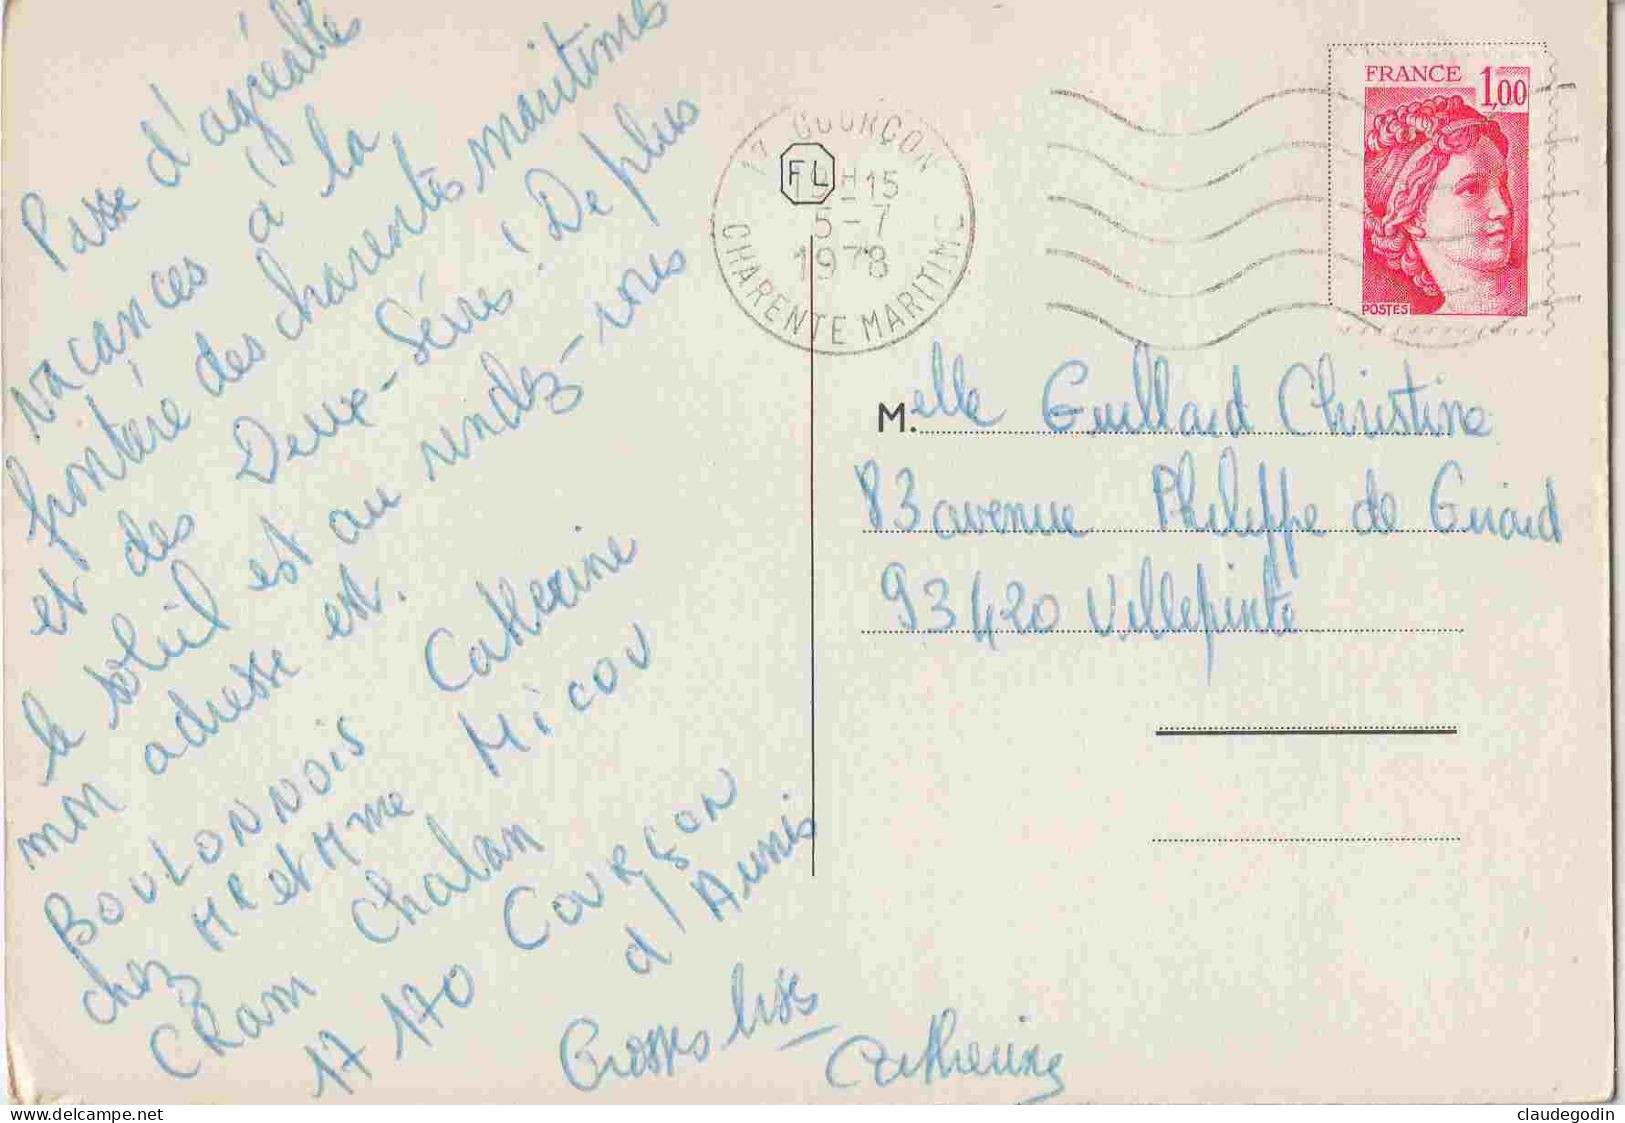 Passe d'agréables
vacances à la
frontère des charentes maritimes
et des Deux-Sèvres ! De plus
le soleil est au rendez-vous
mon adresse est.
BOULONNOIS Catherine
chez MR et Mme MicoU
CRam Chaban
17 170 COURÇON
d'Aunis
Grosses bises
Catherine
17 COURÇON
FL
9H-15
5-7
1978
CHARENTE MARITIME
FRANCE 1,00
POSTES
M.elle Guillard Christine
83 avenue Philippe de Girard
93420 Villepinte
claudegodin